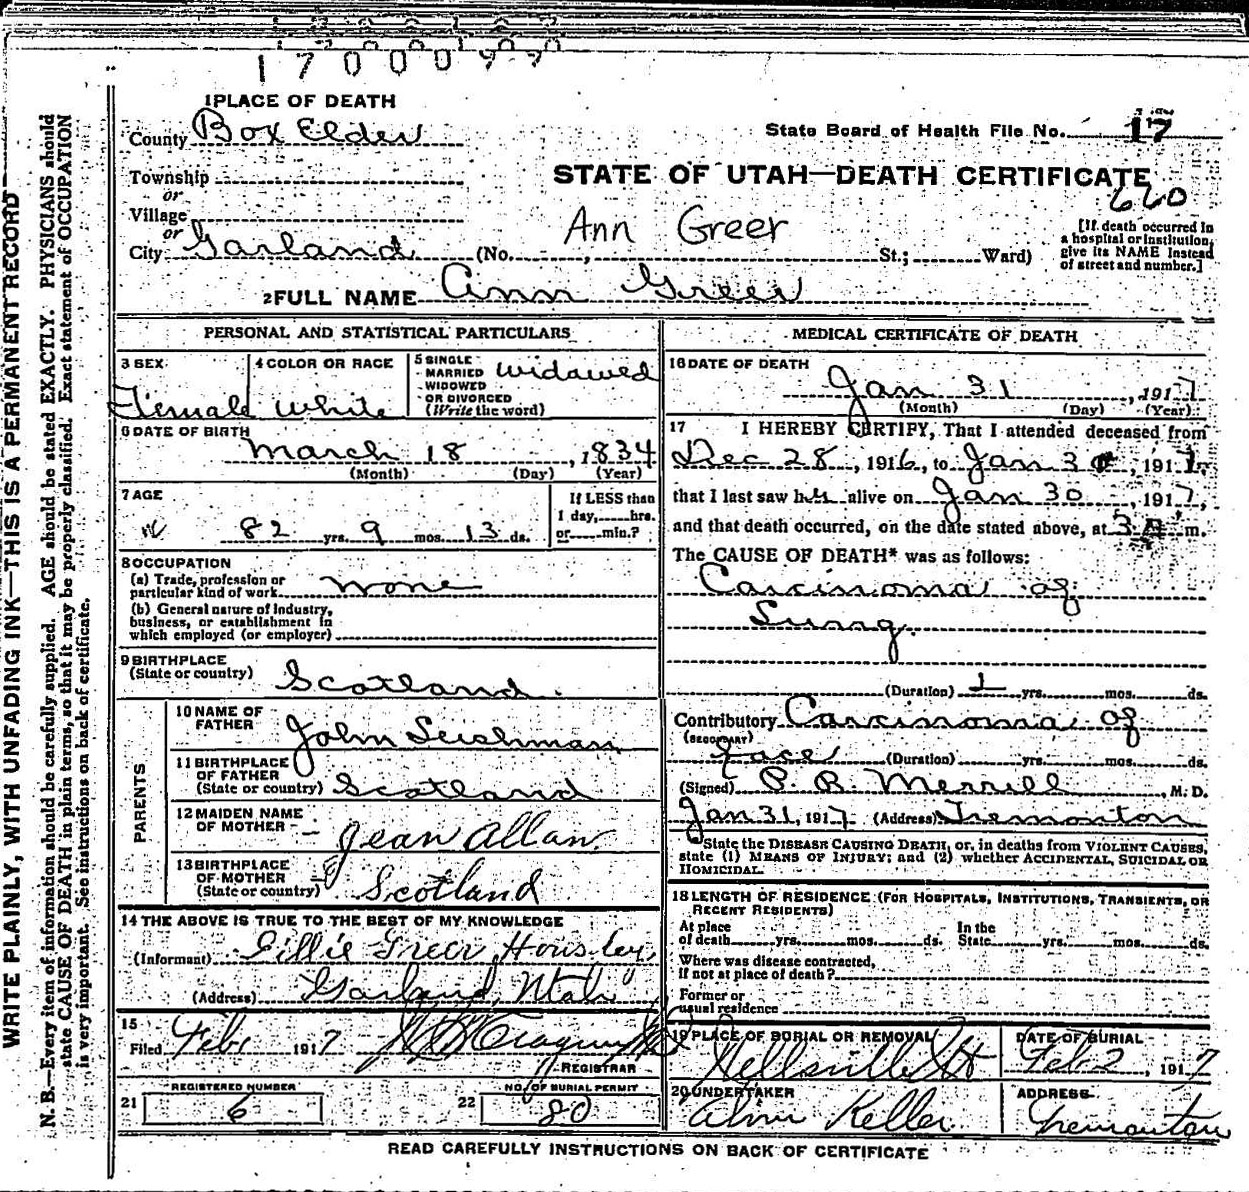 17000990
1 PLACE OF DEATH
County Box Elder
State Board of Health File No. 17
Township
or
STATE OF UTAH—DEATH CERTIFICATE
660
Village
or
Ann Greer
City Garland (No. , St.; Ward)
[If death occurred in
a hospital or institution,
give its NAME instead
of street and number.]
2 FULL NAME Ann Greer
PERSONAL AND STATISTICAL PARTICULARS
3 SEX
Female
4 COLOR OR RACE
White
5 SINGLE
MARRIED
WIDOWED
OR DIVORCED
(Write the word)
Widowed
6 DATE OF BIRTH
March 18, 1834
(Month) (Day) (Year)
7 AGE
82 yrs. 9 mos. 13 ds.
If LESS than
1 day, hrs.
or min.?
8 OCCUPATION
(a) Trade, profession or
particular kind of work None
(b) General nature of industry,
business, or establishment in
which employed (or employer)
9 BIRTHPLACE
(State or country) Scotland
PARENTS
10 NAME OF
FATHER John Leishman
11 BIRTHPLACE
OF FATHER
(State or country) Scotland
12 MAIDEN NAME
OF MOTHER Jean Allan
13 BIRTHPLACE
OF MOTHER
(State or country) Scotland
14 THE ABOVE IS TRUE TO THE BEST OF MY KNOWLEDGE
(Informant) Lillie Greer Housley
(Address) Garland, Utah
15
Filed Feb 1 1917
REGISTRAR
REGISTERED NUMBER
21 6
NO. OF BURIAL PERMIT
22 80
MEDICAL CERTIFICATE OF DEATH
16 DATE OF DEATH
Jan 31, 1917
(Month) (Day) (Year)
17 I HEREBY CERTIFY, That I attended deceased from
Dec 28, 1916, to Jan 30, 1917,
that I last saw her alive on Jan 30, 1917,
and that death occurred, on the date stated above, at 3 A m.
The CAUSE OF DEATH* was as follows:
Carcinoma of
Lung.
(Duration) 1 yrs. mos. ds.
Contributory Carcinoma of
(SECONDARY)
face (Duration) yrs. mos. ds.
(Signed) P. R. Merrill, M. D.
Jan 31, 1917. (Address) Tremonton
*State the DISEASE CAUSING DEATH, or, in deaths from VIOLENT CAUSES,
state (1) MEANS OF INJURY; and (2) whether ACCIDENTAL, SUICIDAL OR
HOMICIDAL.
18 LENGTH OF RESIDENCE (FOR HOSPITALS, INSTITUTIONS, TRANSIENTS, OR
RECENT RESIDENTS)
At place
of death yrs. mos. ds.
In the
State yrs. mos. ds.
Where was disease contracted,
if not at place of death?
Former or
usual residence
19 PLACE OF BURIAL OR REMOVAL
Wellsville Ut
DATE OF BURIAL
Feb 2, 1917
20 UNDERTAKER
Alvin Keller
ADDRESS
Tremonton
READ CAREFULLY INSTRUCTIONS ON BACK OF CERTIFICATE
WRITE PLAINLY, WITH UNFADING INK—THIS IS A PERMANENT RECORD
N. B.—Every item of information should be carefully supplied. AGE should be stated EXACTLY. PHYSICIANS should
state CAUSE OF DEATH in plain terms, so that it may be properly classified. Exact statement of OCCUPATION
is very important. See instructions on back of certificate.